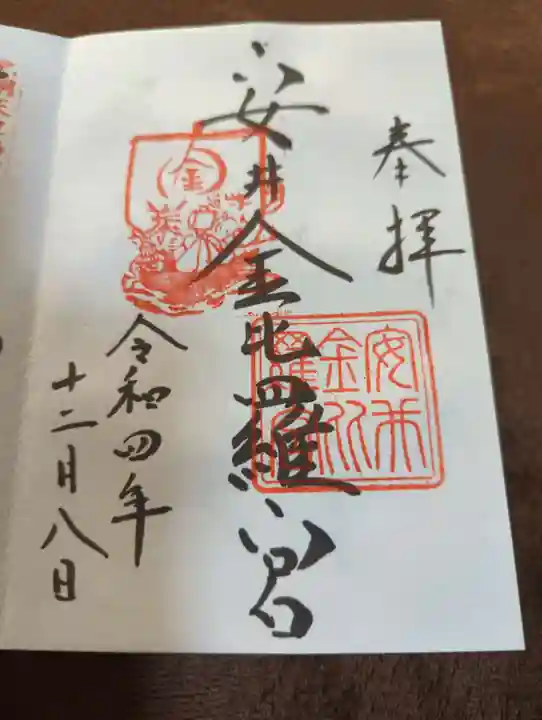 奉拝
安井金比羅宮
安井
金比
羅
金
令和四年
十二月八日